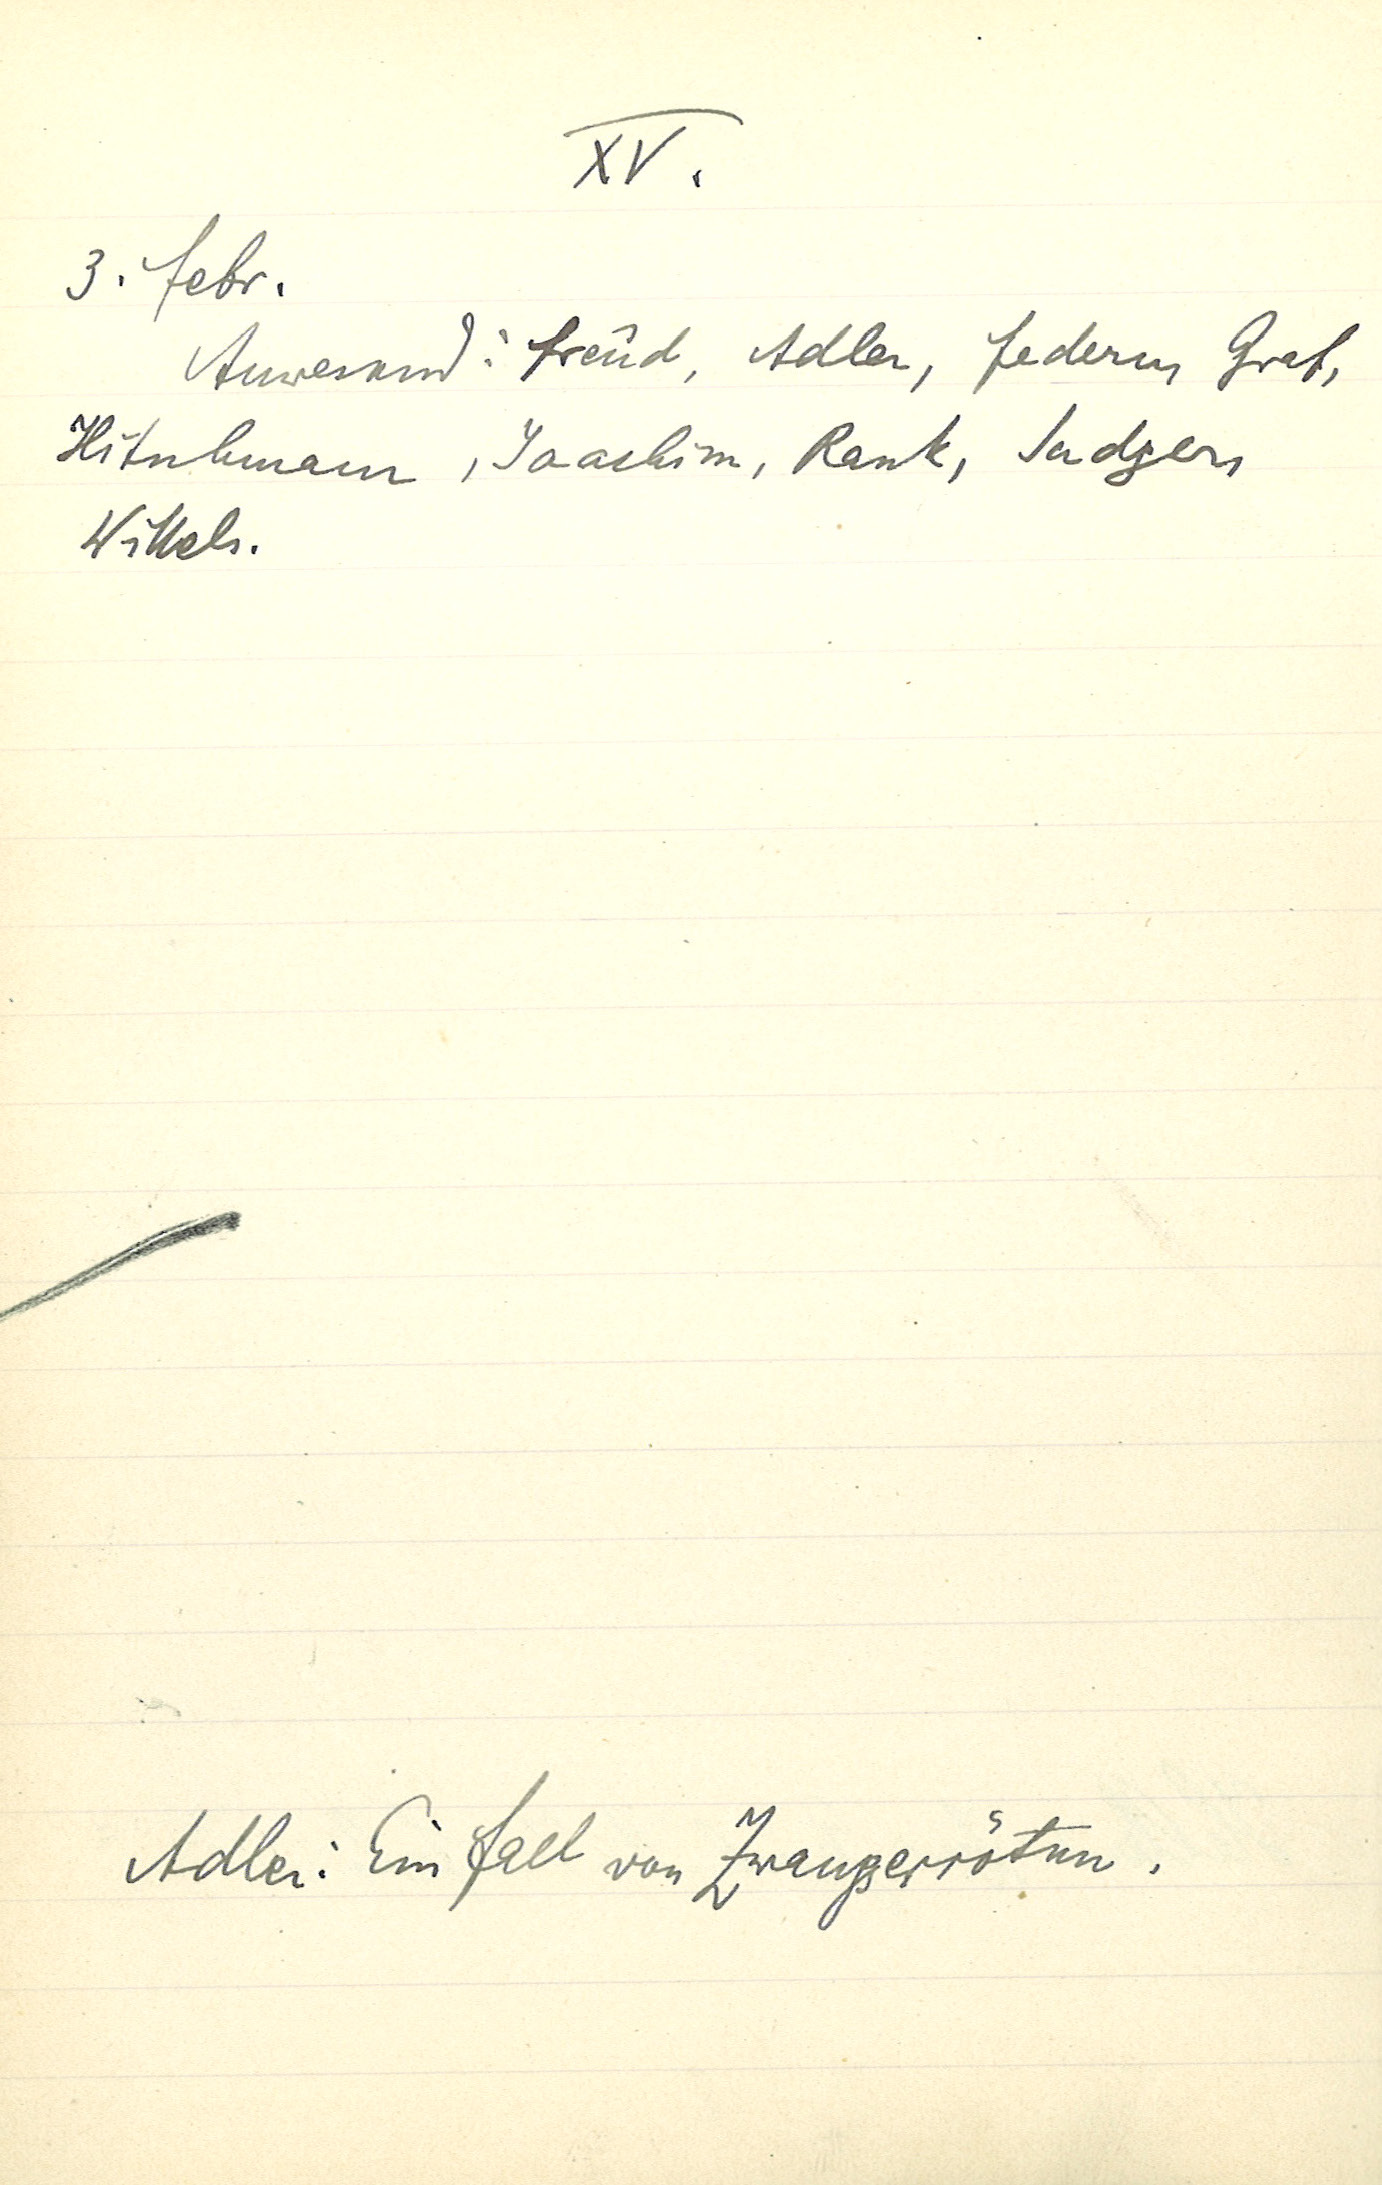 XV.
3. Febr.
Anwesend: Freud, Adler, Federn, Graf,
Hitschmann, Joachim, Rank, Sadger,
Wittels.
Adler: Ein Fall von Zwangserröten.